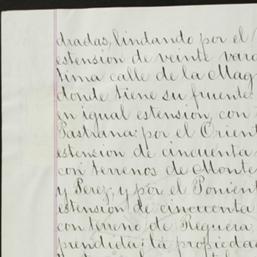 dradas, lindando por el
estension de veinte vara
tima calle de la Mag
donde tiene su fuente
en igual estension, con
Pastrana: por el Orient
estension de cincuenta
con terrenos de Monte
y Perez, y por el Ponient
estension de cincuenta
con terreno de Reguera
prendida la propiedad